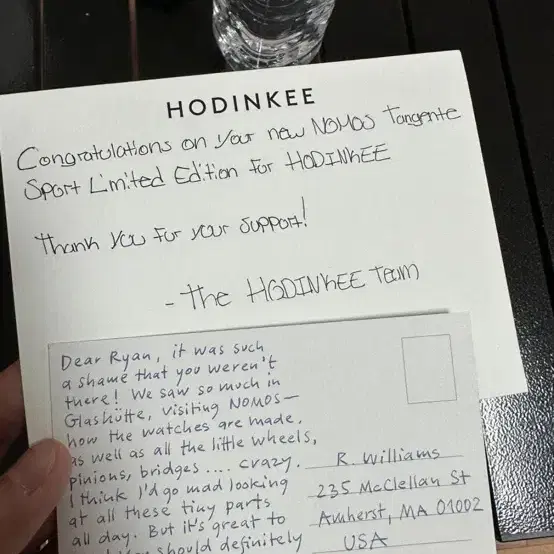 HODINKEE
Congratulations on your new NOMOS Tangente
Sport Limited Edition for HODINKEE
Thank you for your support!
- The HODINKEE Team
Dear Ryan, it was such
a shame that you weren't
there! We saw so much in
Glashütte, visiting NOMOS—
how the watches are made,
as well as all the little wheels,
pinions, bridges .... crazy.
I think I'd go mad looking
at all these tiny parts
all day. But it's great to
should definitely
R. Williams
235 McClellan St
Amherst, MA 01002
USA